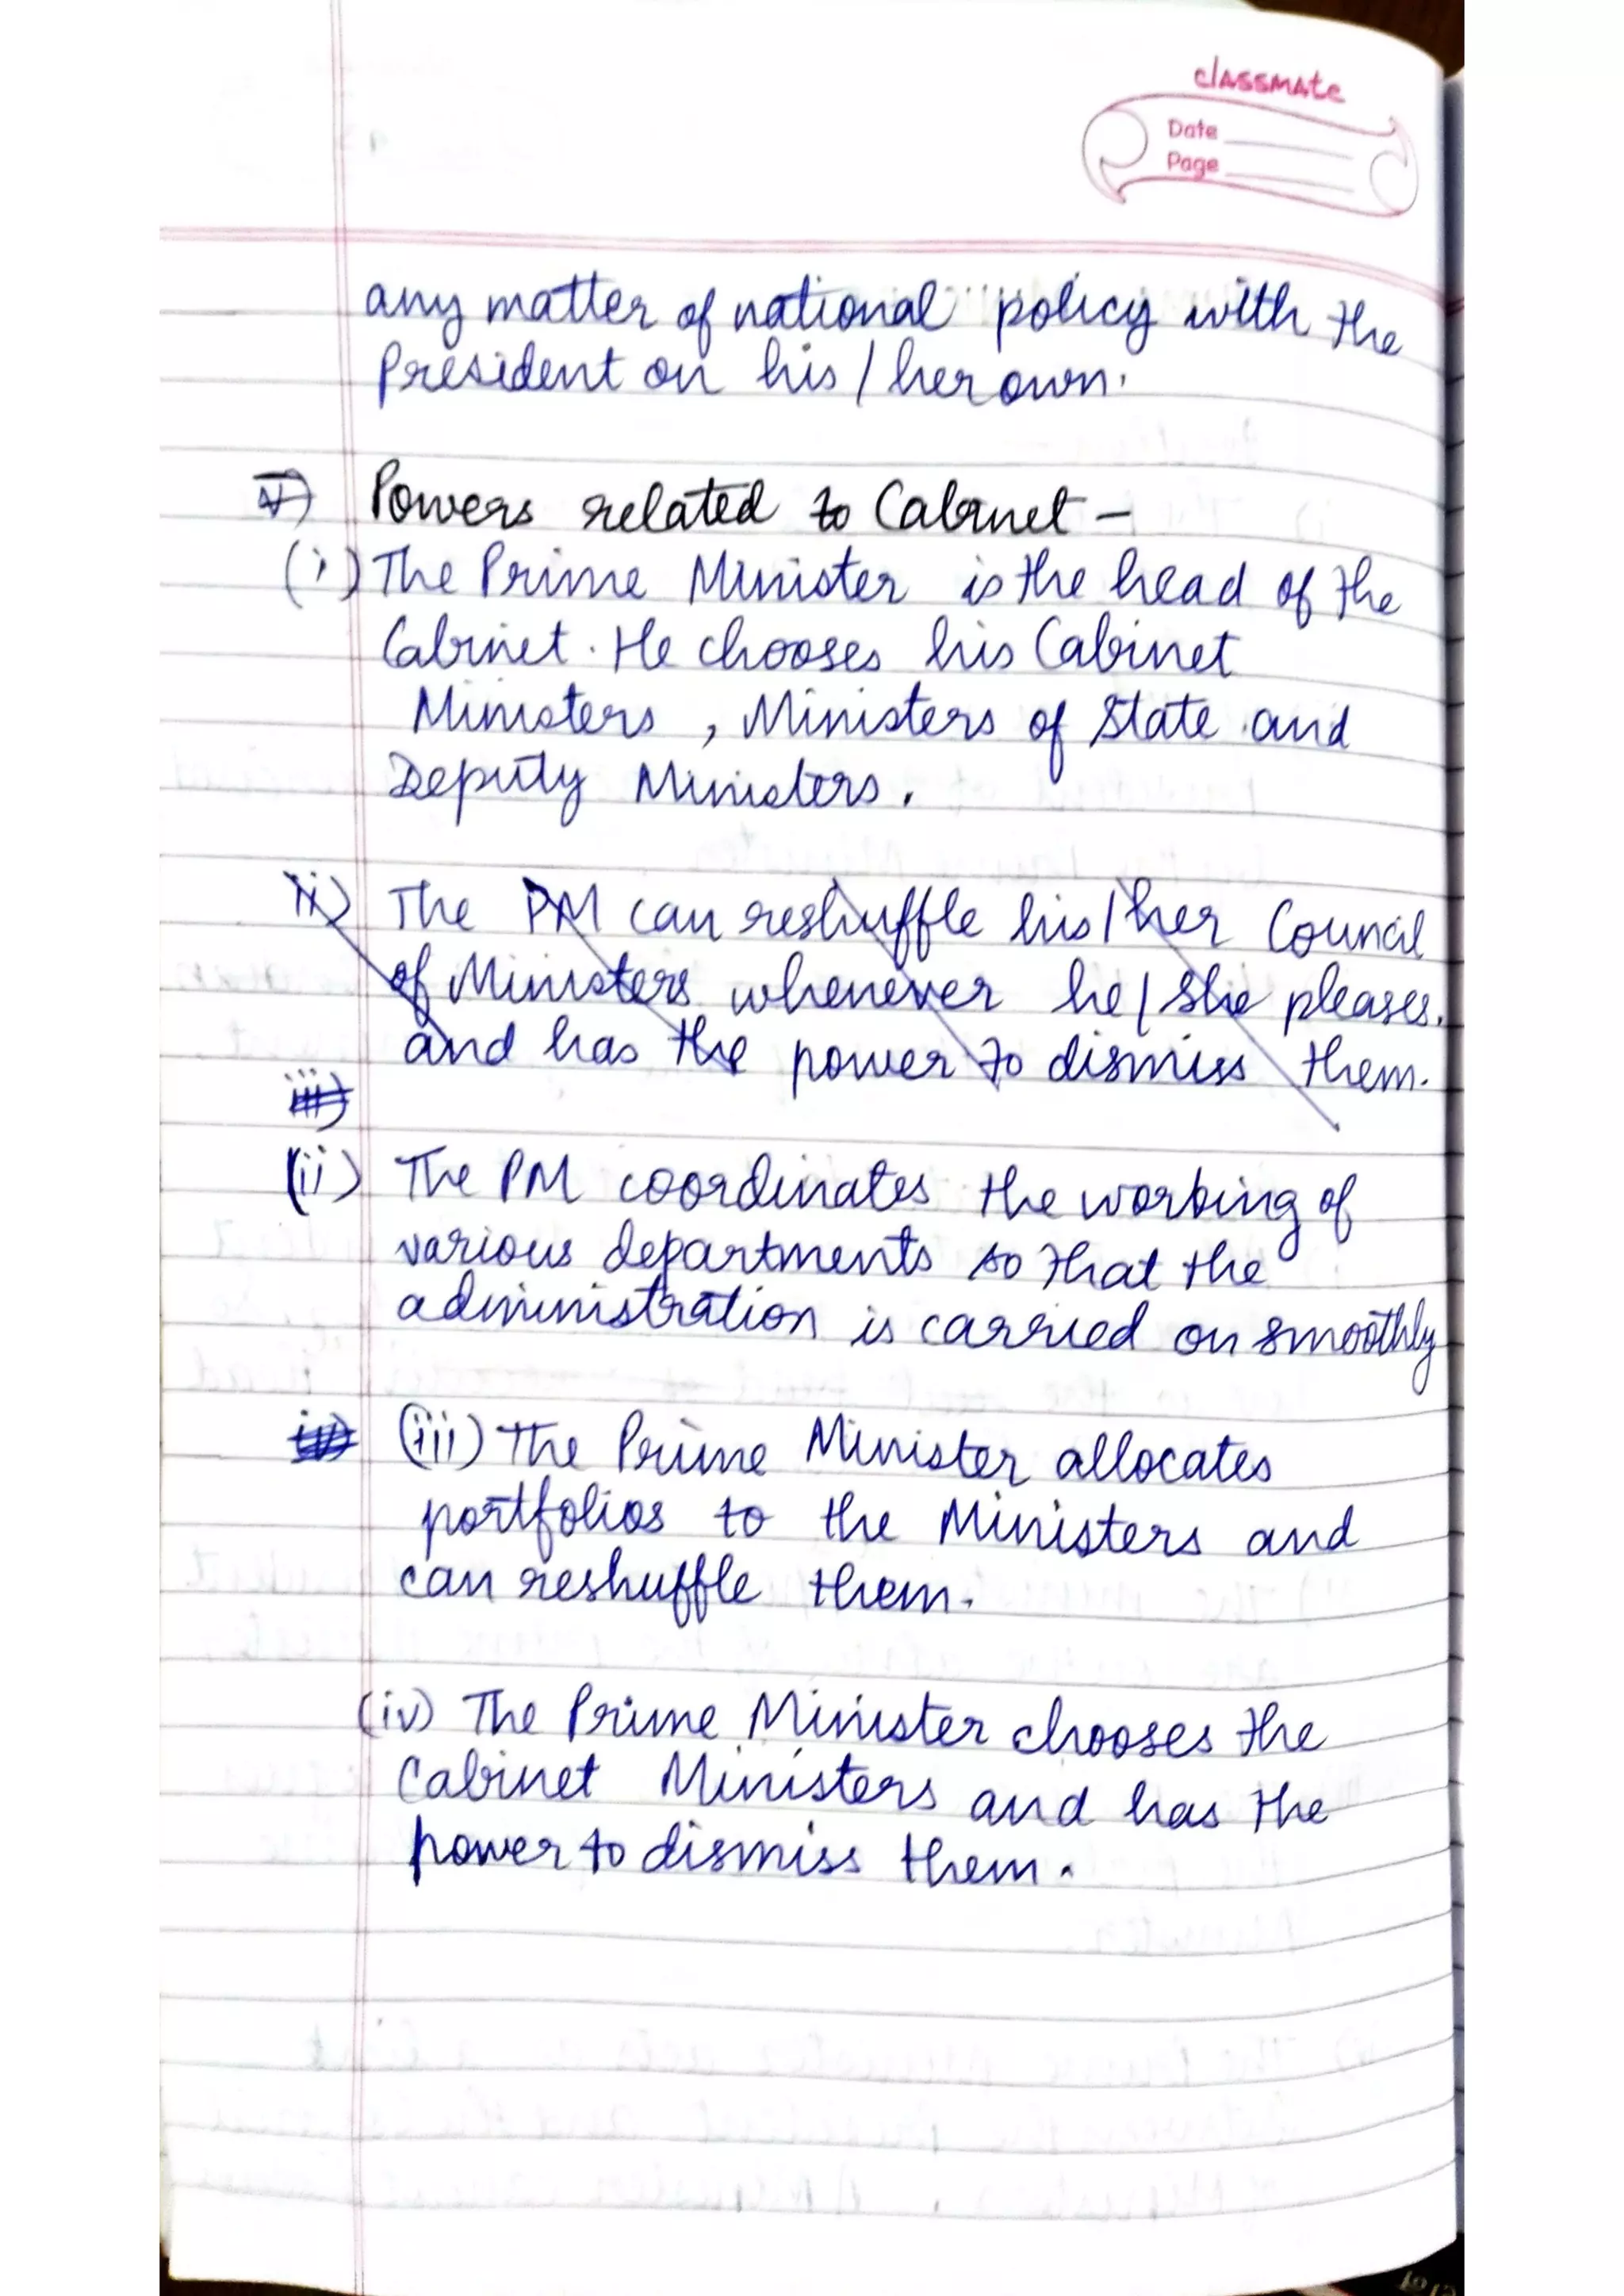 classmate
Date
Page
any matter of national policy with the
President on his / her own.
V) Powers related to Cabinet –
(i) The Prime Minister is the head of the
Cabinet. He chooses his Cabinet
Ministers, Ministers of State and
Deputy Ministers.
ii) The PM can reshuffle his/her Council
of Ministers whenever he/she pleases.
and has the power to dismiss them.
iii)
(ii) The PM coordinates the working of
various departments so that the
administration is carried on smoothly
iv) (iii) The Prime Minister allocates
portfolios to the Ministers and
can reshuffle them.
(iv) The Prime Minister chooses the
Cabinet Ministers and has the
power to dismiss them.